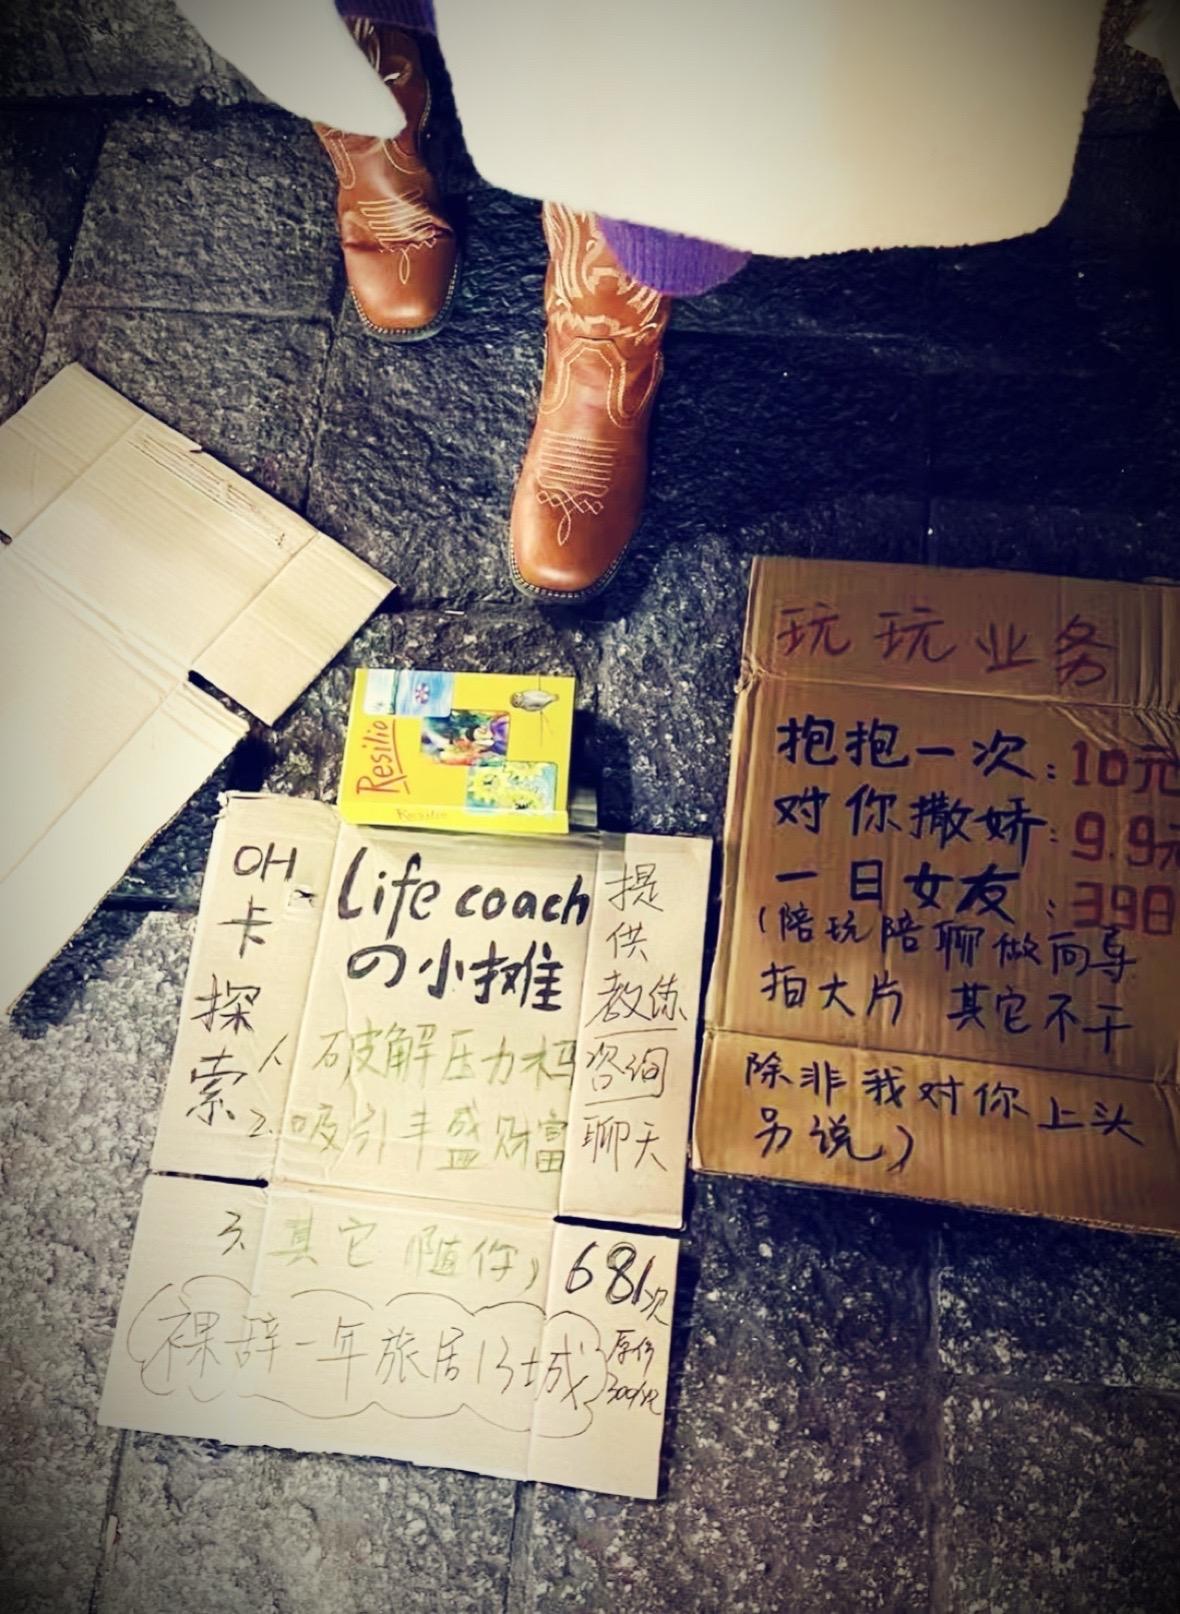 Resilio
Resilio
OH
卡
探
索
Life coach
の小摊
1. 破解压力
2. 吸引丰盛财富
3. 其它随你)
裸辞一年旅居13城
提
供
教练
咨询
聊天
68/次
原价
300/次
玩玩业务
抱抱一次：10元
对你撒娇：9.9元
一日女友：398
(陪玩陪聊做向导
拍大片 其它不干
除非我对你上头
另说)